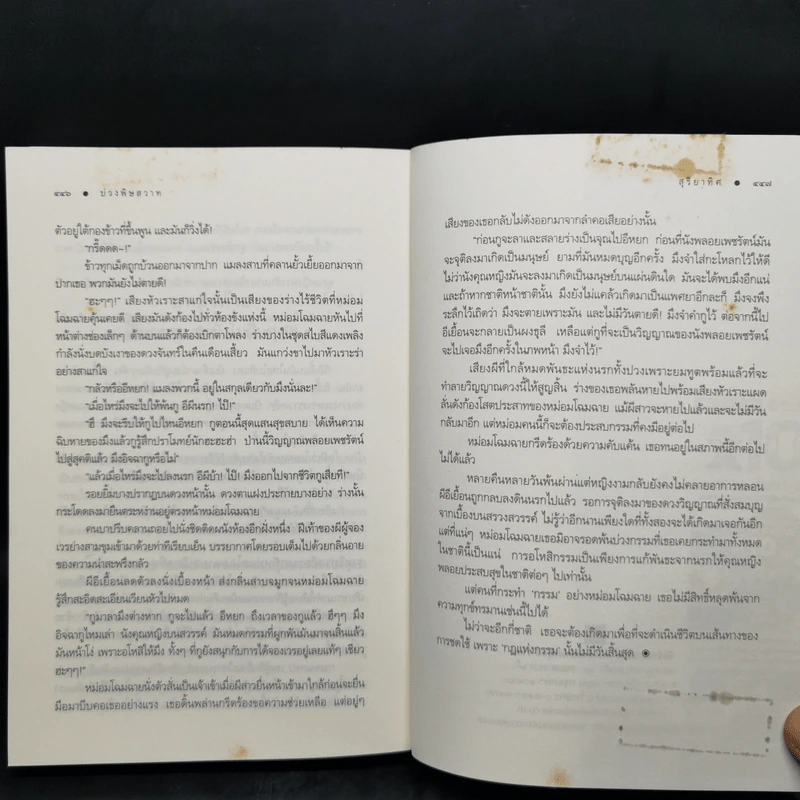 ๔๔๖ ● บ่วงพิษสวาท
ตัวอยู่ใต้กองข้าวที่ขึ้นพูน และมันก็วิ่งได้!
“กรี๊ดดด~!”
ข้าวทุกเม็ดถูกบ้วนออกมาจากปาก แมลงสาบที่คลานยั้วเยี้ยออกมาจาก
ปากเธอ พวกมันยังไม่ตายดี!
“ฮะๆๆ!” เสียงหัวเราะสาแกใจนั้นเป็นเสียงของร่างไร้ชีวิตที่หม่อม
โฉมฉายคุ้นเคยดี เสียงมันดังก้องไปทั่วห้องขังแห่งนี้ หม่อมโฉมฉายหันไปที่
หน้าต่างช่องเล็กๆ ด้านบนแล้วก็ต้องเบิกตาโพลง ร่างบางในชุดสไบสีแดงเพลิง
กำลังนั่งบดบังเงาของดวงจันทร์ในคืนเดือนเสี้ยว มันแกว่งขาไปมาหัวเราะร่า
อย่างสาแกใจ
“กลัวหรืออีหยก! แมลงพวกนี้ อยู่ในสกุลเดียวกับมึงนั่นละ!”
“เมื่อไหร่มึงจะไปให้พ้นกู อีผีนรก! ไป๊!”
“ฮึ มึงจะรีบให้กูไปไหนอีหยก กูตอนนี้สุดแสนสุขสบาย ได้เห็นความ
ฉิบหายของมึงแล้วกูรู้สึกปราโมทย์นักฮะฮะฮ่า ป่านนี้วิญญาณพลอยเพชรัตน์
ไปสู่สุคติแล้ว มึงอิจฉากูหรือไม่”
“แล้วเมื่อไหร่มึงจะไปลงนรก อีผีบ้า! ไป๊! มึงออกไปจากชีวิตกูเสียที!”
รอยยิ้มบางปรากฏบนดวงหน้านั้น ดวงตาแฝงประกายบางอย่าง ร่างนั้น
กระโดดลงมายืนตระหง่านอยู่ตรงหน้าหม่อมโฉมฉาย
คนบาปรีบคลานถอยไปนั่งชิดติดผนังห้องอีกฝั่งหนึ่ง ฝีเท้าของผีผู้จอง
เวรย่างสามขุมเข้ามาด้วยท่าทีเรียบเย็น บรรยากาศโดยรอบเต็มไปด้วยกลิ่นอาย
ของความน่าสะพรึงกลัว
ผีอีเยื้อนลดตัวลงนั่งเบื้องหน้า ส่งกลิ่นสาบจมูกจนหม่อมโฉมฉาย
รู้สึกสะอิดสะเอียนเวียนหัวไปหมด
“กูมาลามึงต่างหาก กูจะไปแล้ว อีหยก ถึงเวลาของกูแล้ว ฮึๆๆ มึง
อิจฉากูไหมเล่า นังคุณหญิงบนสวรรค์ มันหมดกรรมที่ผูกพันมันมาจนสิ้นแล้ว
มันหน้าโง่ เพราะอโหสิให้มึง ทั้งๆ ที่กูยังสนุกกับการได้จองเวรอยู่เลยแท้ๆ เชียว
ฮะๆๆ!”
หม่อมโฉมฉายนั่งตัวสั่นเป็นเจ้าเข้าเมื่อผีสาวยื่นหน้าเข้ามาใกล้ก่อนจะยื่น
มือมาบีบคอเธออย่างแรง เธอดิ้นพล่านกรีดร้องขอความช่วยเหลือ แต่อยู่ๆ
สุริยาทิศ ● ๔๔๗
เสียงของเธอกลับไม่ดังออกมาจากลำคอเสียอย่างนั้น
“ก่อนกูจะลาและสลายร่างเป็นจุณไปอีหยก ก่อนที่นังพลอยเพชรัตน์มัน
จะจุติลงมาเกิดเป็นมนุษย์ ยามที่มันหมดบุญอีกครั้ง มึงจำใส่กะโหลกไว้ให้ดี
ไม่ว่านังคุณหญิงมันจะลงมาเกิดเป็นมนุษย์บนแผ่นดินใด มันจะได้พบมึงอีกแน่
และถ้าหากชาติหน้าชาตินั้น มึงยังไม่แคล้วเกิดมาเป็นแพศยาอีกละก็ มึงจงพึง
ระลึกไว้เถิดว่า มึงจะตายเพราะมัน และไม่มีวันตายดี! มึงจำคำกูไว้ ต่อจากนี้ไป
อีเยื้อนจะกลายเป็นผงธุลี เหลือแต่กูที่จะเป็นวิญญาณของนังพลอยเพชรัตน์
จะไปเจอมึงอีกครั้งในภพหน้า มึงจำไว้!”
เสียงผีที่ใกล้หมดพันธะแห่งนรกทั้งปวงเพราะยมทูตพร้อมแล้วที่จะ
ทำลายวิญญาณดวงนี้ให้สูญสิ้น ร่างของเธอพลันหายไปพร้อมเสียงหัวเราะแผด
ลั่นดังก้องโสตประสาทของหม่อมโฉมฉาย แม้ผีสาวจะหายไปแล้วและจะไม่มีวัน
กลับมาอีก แต่หม่อมคนนี้ก็ต้องประสบกรรมที่คงมีอยู่ต่อไป
หม่อมโฉมฉายกรีดร้องด้วยความคับแค้น เธอทนอยู่ในสภาพนี้อีกต่อไป
ไม่ได้แล้ว
หลายคืนหลายวันพ้นผ่านแต่หญิงงามกลับยังคงไม่คลายอาการหลอน
ผีอีเยื้อนถูกกลบลงดินนรกไปแล้ว รอการจุติลงมาของดวงวิญญาณที่สั่งสมบุญ
จากเบื้องบนสรวงสวรรค์ ไม่รู้ว่าอีกนานเพียงใดที่ทั้งสองจะได้เกิดมาเจอกันอีก
แต่ที่แน่ๆ หม่อมโฉมฉายเธอมิอาจรอดพ้นบ่วงกรรมที่เธอเคยกระทำมาทั้งหมด
ในชาตินี้เป็นแน่ การอโหสิกรรมเป็นเพียงการแก้พันธะจากนรกให้คุณหญิง
พลอยประสบสุขในชาติต่อๆ ไปเท่านั้น
แต่คนที่กระทำ ‘กรรม’ อย่างหม่อมโฉมฉาย เธอไม่มีสิทธิ์หลุดพ้นจาก
ความทุกข์ทรมานเช่นนี้ไปได้
ไม่ว่าจะอีกกี่ชาติ เธอจะต้องเกิดมาเพื่อที่จะดำเนินชีวิตบนเส้นทางของ
การชดใช้ เพราะ ‘กฎแห่งกรรม’ นั้นไม่มีวันสิ้นสุด ◉